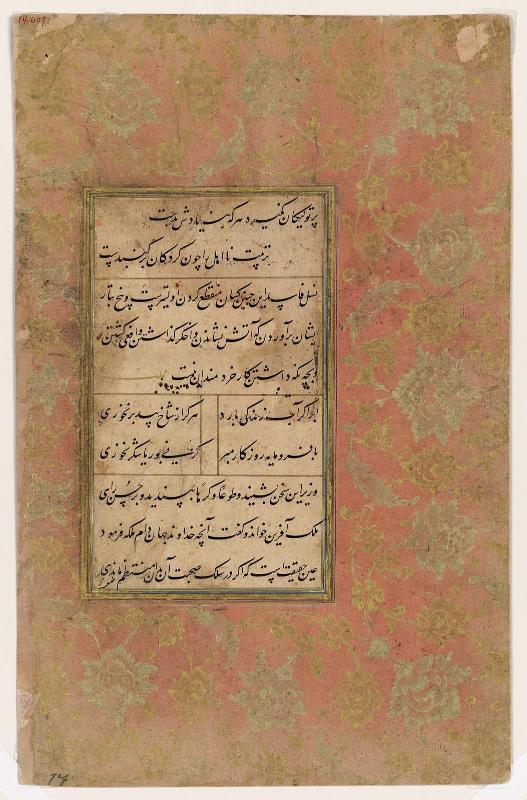 14.609
پرتو نیکان نگیرد هر که بنیادش بدست
تربیت نااهل را چون گردکان بر گنبدست
نسل فاسد این چنین کسان منقطع کردن اولیترست و بیخ تبار
یشان برآوردن که آتش نشاندن و اخگر گذاشتن و افعی کشتن
و بچه نگه داشتن کار خردمندان نیست
ابر اگر آب زندگی بارد هرگز از شاخ بید بر نخوری
با فرومایه روزگار مبر کز نی بوریا شکر نخوری
وزیر این سخن بشنید و طوعا و کرها بپسندید و بر حسن رای
ملک آفرین خواند و گفت آنچه خداوند جهان دام ملکه فرمود
عین حقیقت است که اگر در سلک صحبت آن بدان منتظم ماندی